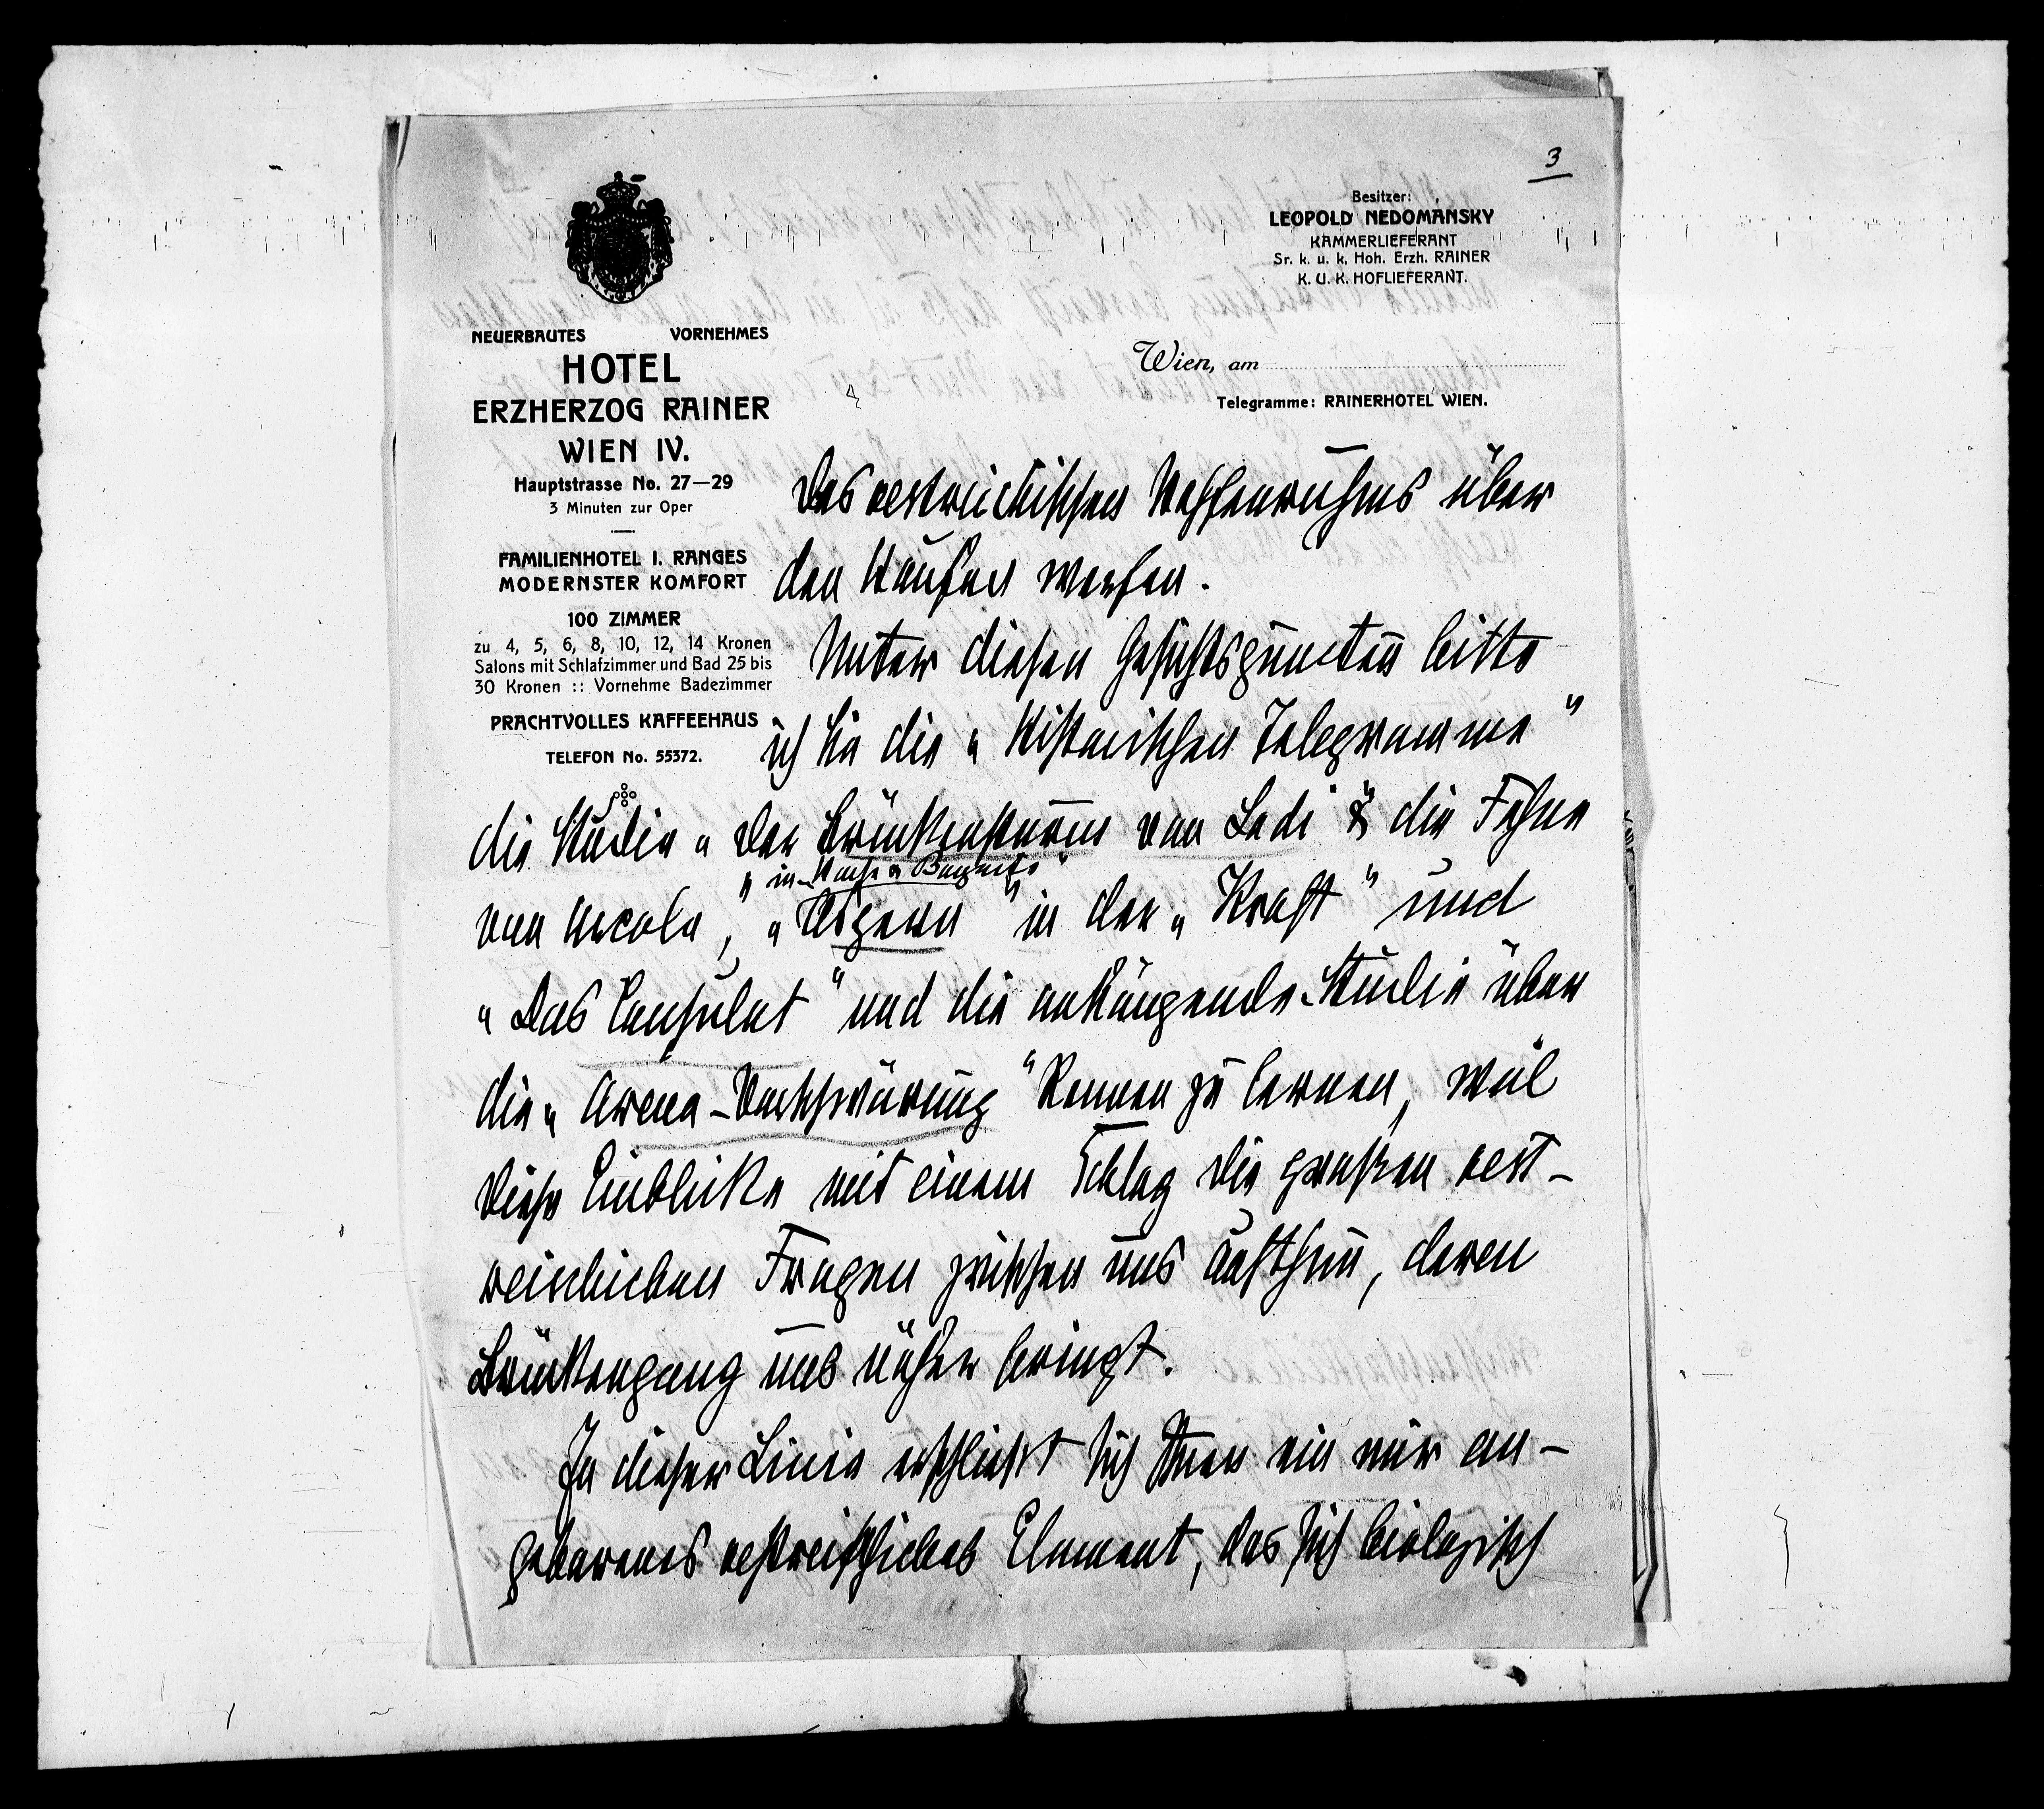 3
Besitzer:
LEOPOLD NEDOMANSKY
KAMMERLIEFERANT
Sr. k. u. k. Hoh. Erzh. RAINER
K. U. K. HOFLIEFERANT.
NEUERBAUTES VORNEHMES
HOTEL
ERZHERZOG RAINER
WIEN IV.
Hauptstrasse No. 27—29
3 Minuten zur Oper
FAMILIENHOTEL I. RANGES
MODERNSTER KOMFORT
100 ZIMMER
zu 4, 5, 6, 8, 10, 12, 14 Kronen
Salons mit Schlafzimmer und Bad 25 bis
30 Kronen :: Vornehme Badezimmer
PRACHTVOLLES KAFFEEHAUS
TELEFON No. 55372.
Wien, am
Telegramme: RAINERHOTEL WIEN.
des oestreichischen Waffenruhms über
den Haufen werfen.
Unter diesen Gesichtspuncten bitte
ich Sie die „Historischen Telegramme"
die Studie „Der Brückensturm von Lodi & die Fahne
von Arcola", „Aspern" in der „Kraft" und
„Das Consulat" und die anhängende Studie über
die „Arena-Verschwörung" kennen zu lernen, weil
diese Einblicke mit einem Schlag die großen oest-
reichischen Fragen zwischen uns aufthun, deren
Brückengang uns näher bringt.
In dieser Linie erschließt sich Ihnen ein mir an-
geborenes oestreichisches Element, das sich biologisch